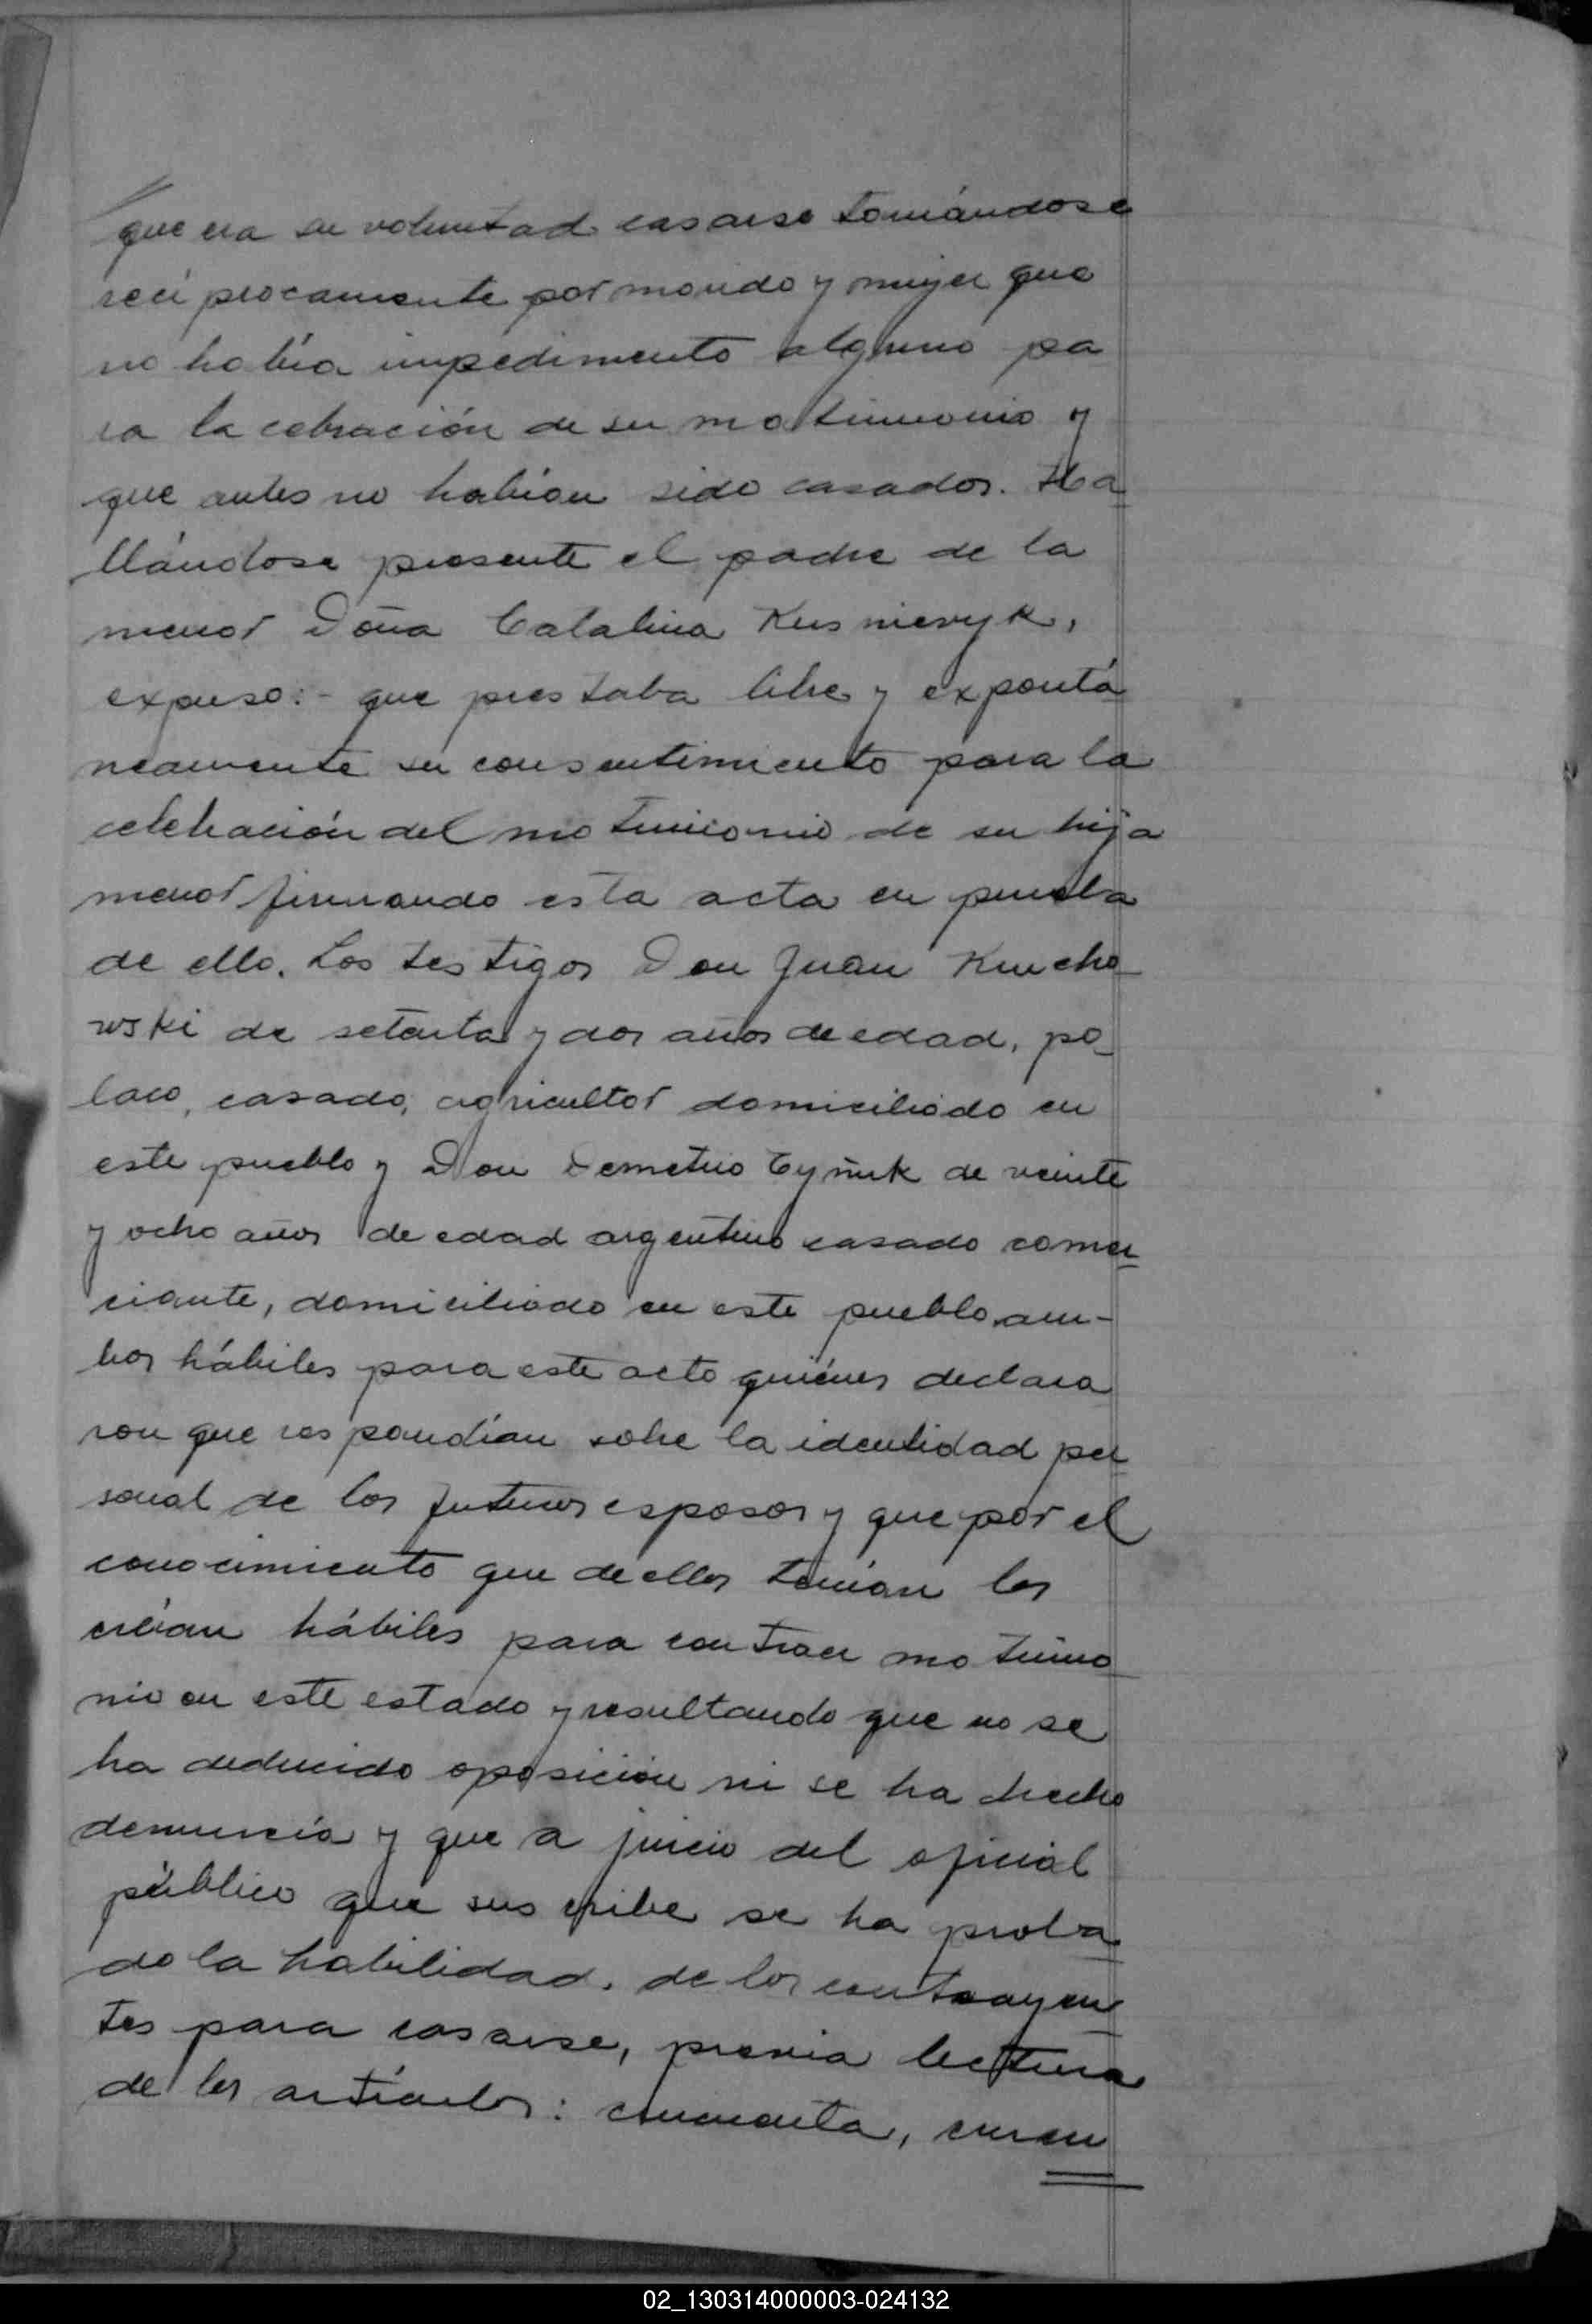 que era su voluntad casarse tomándose
recíprocamente por marido y mujer que
no había impedimento alguno pa
ra la cebración de su matrimonio y
que antes no habían sido casados. Ha
llándose presente el padre de la
menor Doña Catalina Kusnievyk,
expuso:- que prestaba libre y expontá
neamente su consentimiento para la
celebración del matrimonio de su hija
menor firmando esta acta en prueba
de ello. Los testigos Don Juan
wski de setenta y dos años de edad, po
laco, casado, agricultor domiciliado en
este pueblo y Don Demetrio de veinte
y ocho años de edad argentino casado comer
ciante, domiciliado en este pueblo, am-
bos hábiles para este acto quiénes declara
ron que respondían sobre la identidad per
sonal de los futuros esposos y que por el
conocimiento que de ellos tenían los
creían hábiles para contraer matrimo
nio en este estado y resultando que no se
ha deducido oposición ni se ha hecho
denuncia y que a juicio del oficial
público que suscribe se ha proba
do la habilidad. de los contrayen
tes para casarse, previa lectura
de los artículos: cincuenta, cincuen
02_130314000003-024132